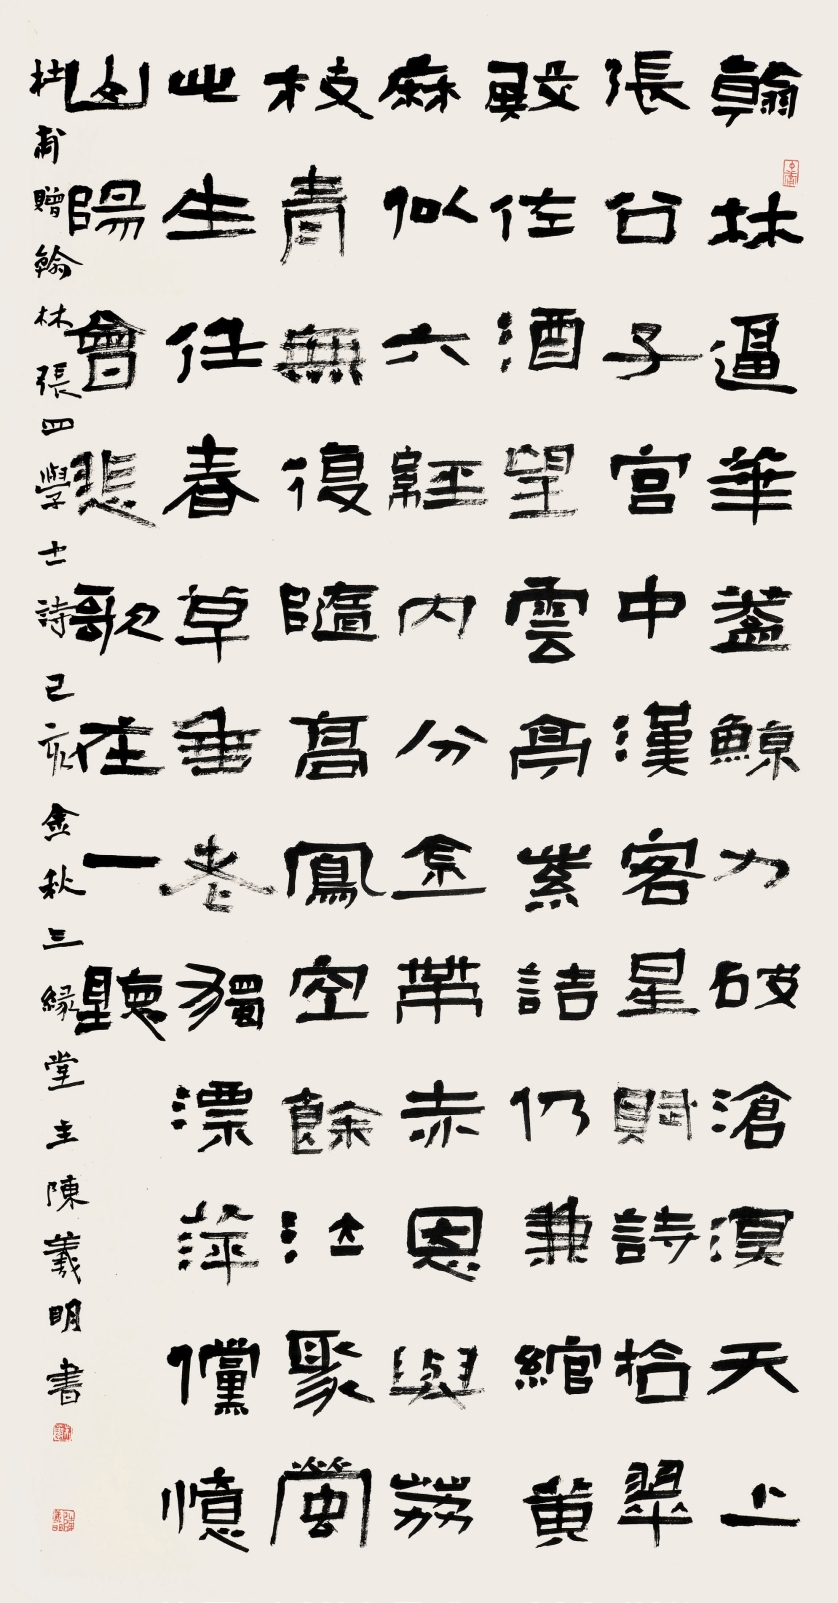 翰林逼華蓋鯨力破滄溟天上
張公子宮中漢客星賦詩拾翠
殿佐酒望雲亭紫誥仍兼綰黃
麻似六經內分金帶赤恩與荔
枝青無復隨高鳳空餘泣聚螢
此生任春草垂老獨漂萍儻憶
山陽會悲歌在一聽
杜甫贈翰林張四學士詩己亥金秋三緣堂主陳義明書